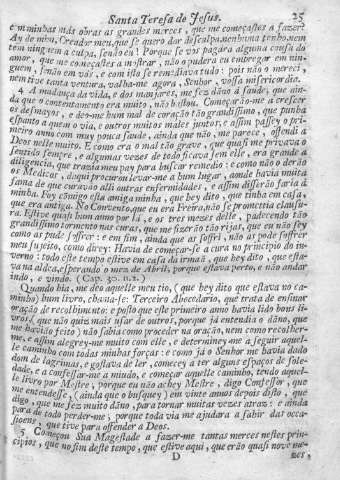 Santa Teresa de Jesus. 25
em minhas más obras as grandes merces, que me começastes a fazer?
Ay de mim, Creador meu, que se quero dar desculpa, nenhuma tenho, nem
tem ninguem a culpa, senão eu! Porque se vos pagára alguma cousa do
amor, que me começastes a mostrar, não o pudera eu empregar em nin-
guem, senão em vós, e com isto se remediava tudo: pois não o mereci,
nem tive tanta ventura, valha-me agora, Senhor, vossa misericordia.
4 A mudança da vida, e dos manjares, me fez dano á saude, que ain-
da que o contentamento era muito, não bastou. Começarão-me a crescer
os desmayos, e deo-me hum mal de coração tão grandissimo, que punha
espanto a quem o via, e outros muitos males juntos; e assim passey o pri-
meiro anno com muy pouca saude, ainda que não, me parece, offendi a
Deos nelle muito. E como era o mal tão grave, que quasi me privava o
sentido sempre, e algumas vezes de todo ficava sem elle, era grande a
diligencia, que trazia meu pay para buscar remedio: e como não o derão
os Medicos, daqui procurou levar-me a hum lugar, aonde havia muita
fama de que curavão alli outras enfermidades, e assim disserão faria á
minha. Foy comigo esta amiga minha, que hey dito, que tinha em casa,
que era antiga. No Convento, que eu era Freira, não se promettia clausu-
ra. Estive quasi hum anno por lá, e os tres mezes delle, padecendo tão
grandissimo tormento nas curas, que me fizerão tão rijas, que eu não sey
como as pude soffrer: e em fim, ainda que as soffri, não as pode soffrer
meu sujeito, como direy. Havia de começar-se a cura no principio do in-
verno: todo este tempo estive em casa da irmaã, que hey dito, que esta-
va na aldea, esperando o mez de Abril, porque estava perto, e não andar
indo, e vindo.
Quando hia, me deo aquelle meu tio, (que hey dito que estava no ca-
minho) hum livro, chama-se: Terceiro Abecedario, que trata de ensinar
oração de recolhimento: e posto que este primeiro anno havia lido bons li-
vros (que não quis mais usar de outros, porque já entendia o dano, que
me havião feito) não sabia como proceder na oração, nem como recolher-
me, e assim alegrey-me muito com elle, e determiney-me a seguir aquel-
le caminho com todas minhas forças: e como já o Senhor me havia dado
dom de lagrimas, e gostava de ler, comecey a ter alguns espaços de sole-
dade, e a confessar-me a miudo, e começar aquelle caminho, tendo aquel-
le livro por Mestre, porque eu não achey Mestre, digo Confessor, que
me entendesse, (ainda que o busquey) em vinte annos depois disto, que
digo, que me fez muito dano, para tornar muitas vezes atraz: e ainda
para de todo perder-me; porque toda via me ajudara a sahir das occa-
sioens, que tive para offender a Deos.
5 Começou Sua Magestade a fazer-me tantas merces nestes prin-
cipios, que no fim deste tempo, que estive aqui, que erão quasi nove me-
D zes,